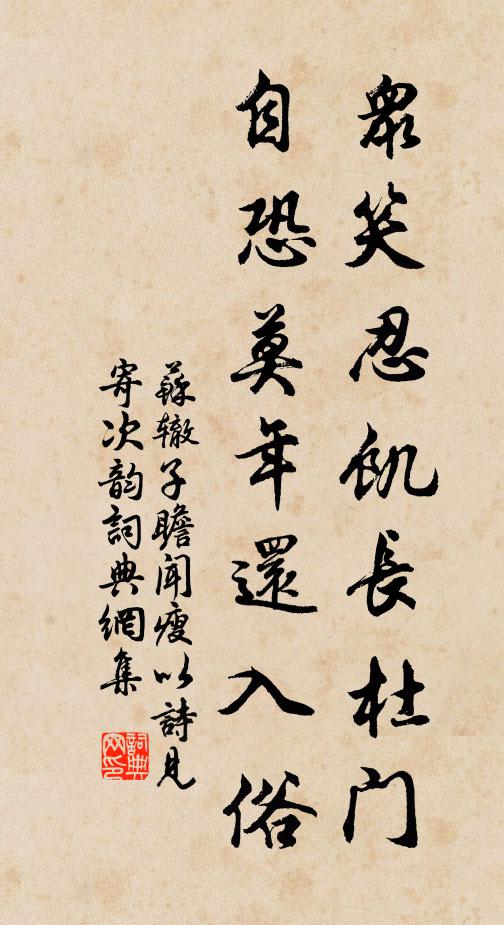 眾笑忍飢長杜门
自恐莫年還入俗
蘇辙子瞻闻瘦以詩見
寄次韵詞典網集
詞典网印